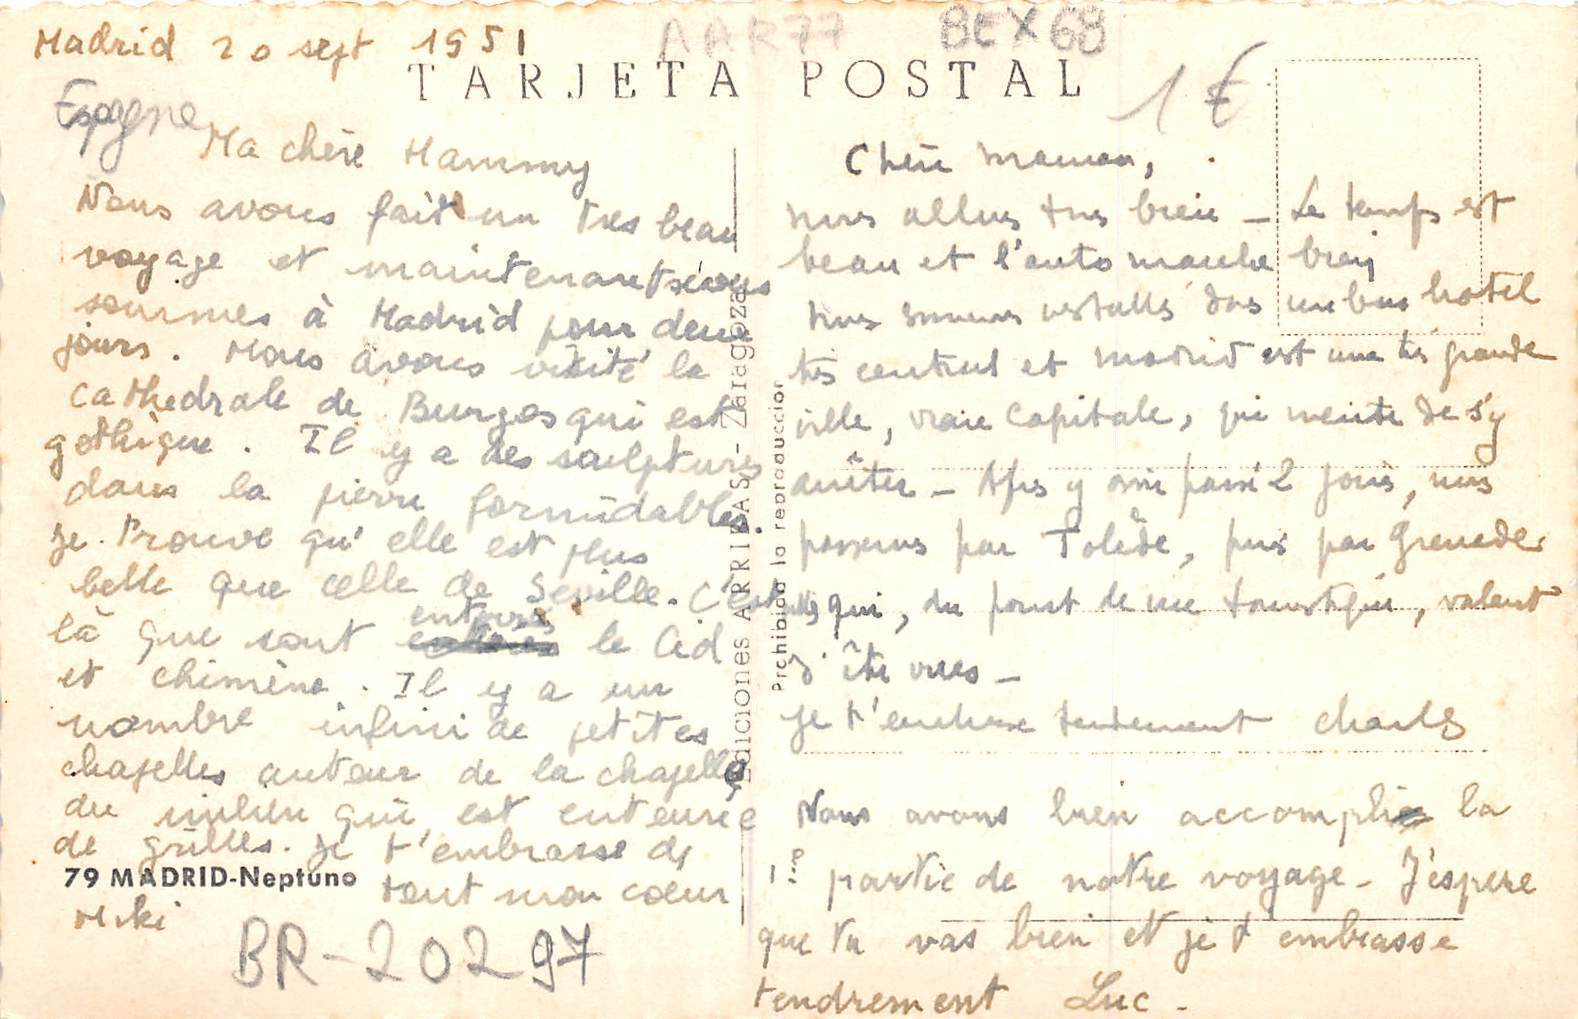 Madrid 20 sept 1951
AAR77
BEX68
TARJETA POSTAL
1€
Espagne
Ma chère Mammy
Nous avons fait un tres beau
voyage et maintenant nous
sommes à Madrid pour deux
jours. Nous avons visité la
cathedrale de Burgos qui est
gothique. Il y a des sculptures
dans la pierre formidables.
Je trouve qu'elle est plus
belle que celle de Seville. C'est
là que sont enterrés le Cid
et chimène. Il y a un
nombre infini de petites
chapelles autour de la chapelle
du milieu qui est entourée
de grilles. Je t'embrasse de
tout mon coeur
Miki
79 MADRID-Neptuno
BR-20297
Ediciones ARRIBAS - Zaragoza
Prohibida la reproduccion
Chère maman,
nous allons tous bien - Le temps est
beau et l'auto marche bien
nous sommes installés dans un bon hotel
très central et Madrid est une très grande
ville, vraie capitale, qui mérite de s'y
arrêter - Après y avoir passé 2 jours, nous
passerons par Tolède, puis par Grenade
qui, du point de vue touristique, valent
d'être vues -
Je t'embrasse tendrement Charles
Nous avons bien accompli la
1re partie de notre voyage - J'espere
que tu vas bien et je t'embrasse
tendrement Luc -